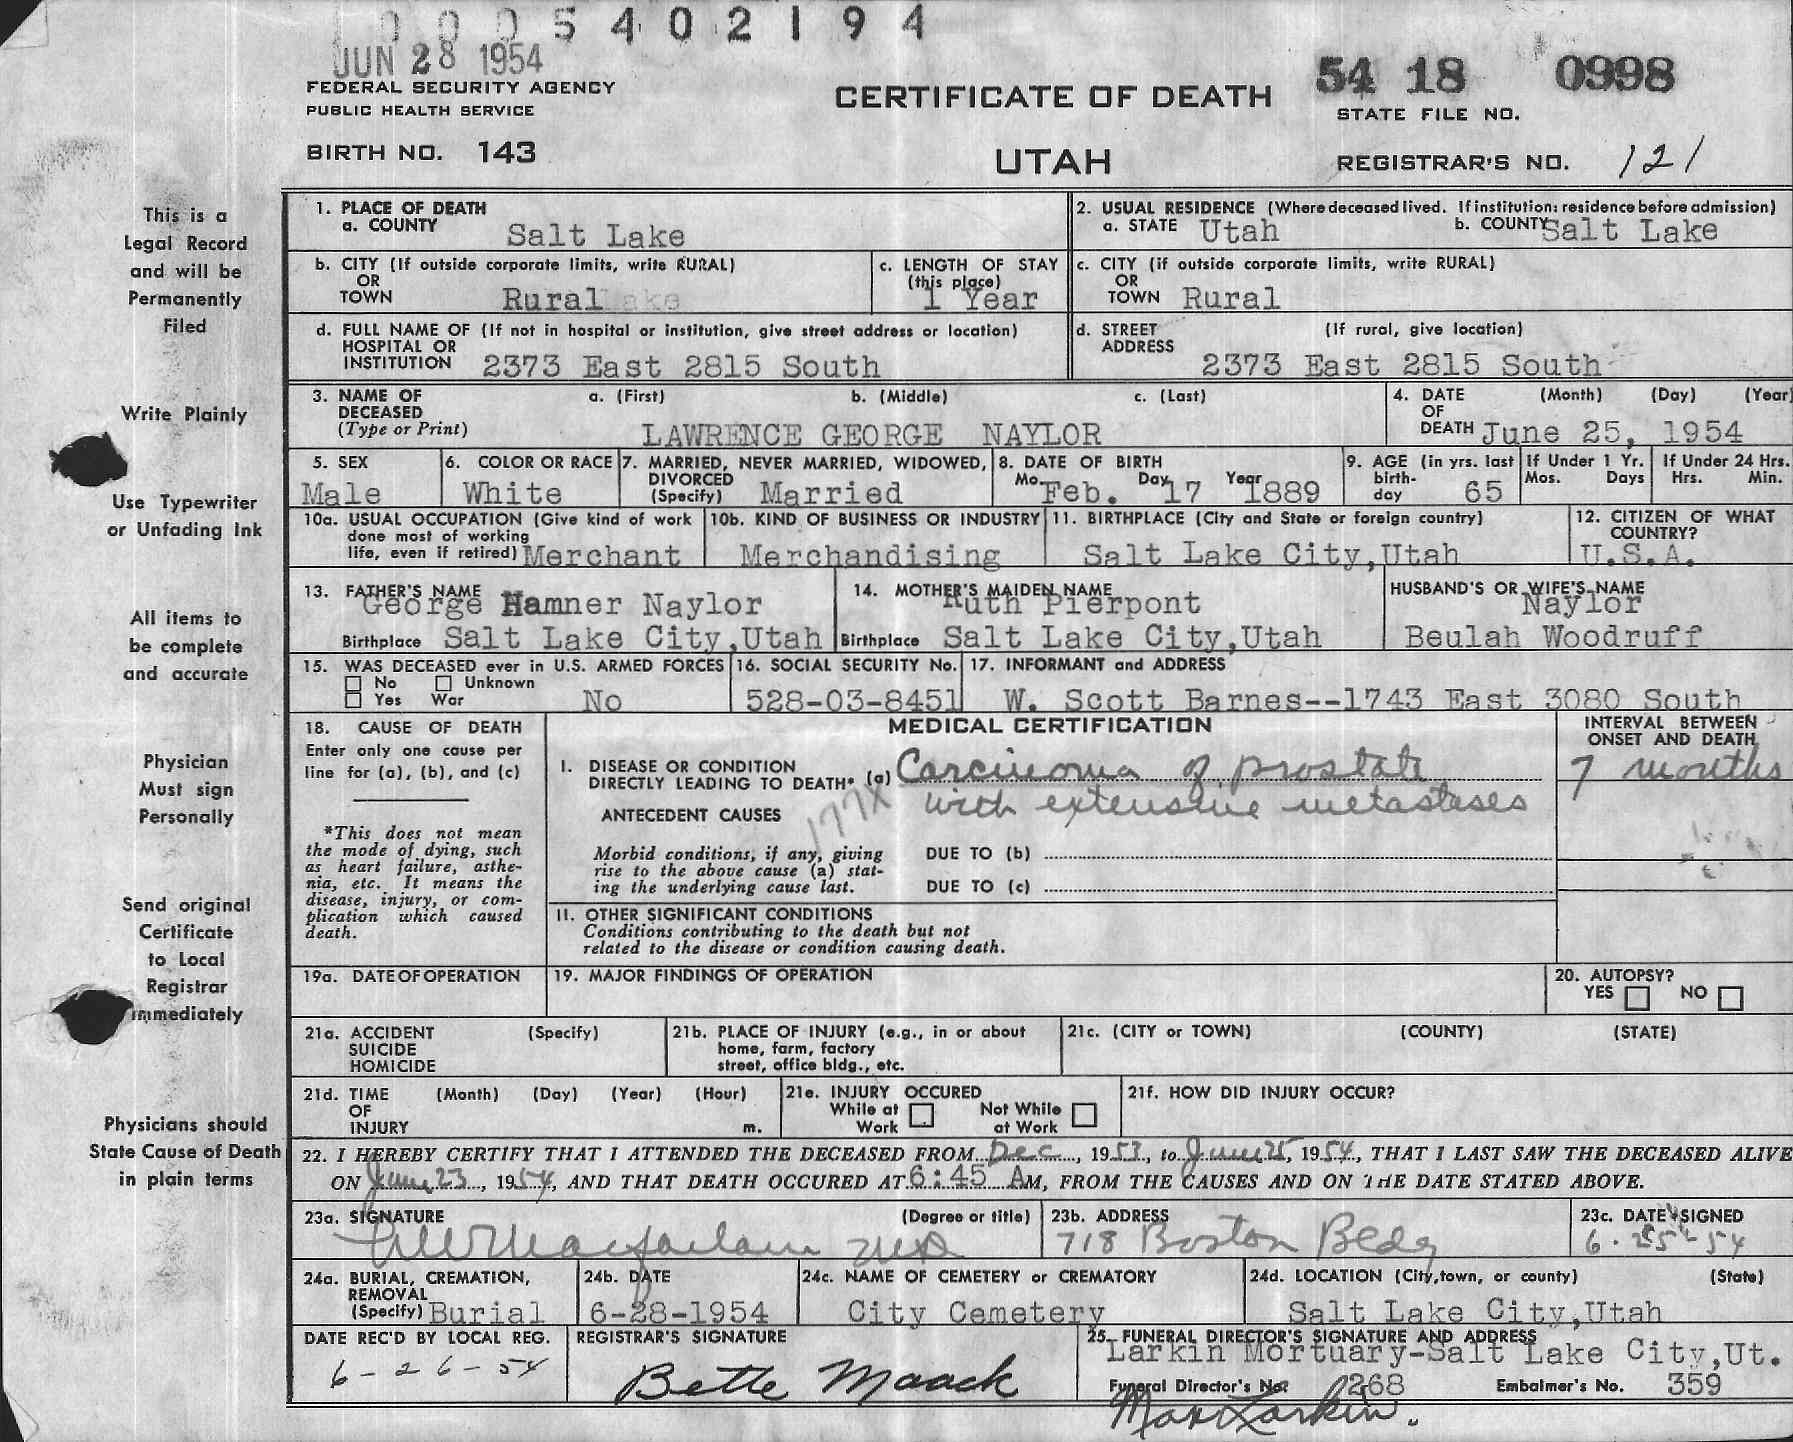 0005402194
JUN 28 1954
FEDERAL SECURITY AGENCY
PUBLIC HEALTH SERVICE
BIRTH NO. 143
CERTIFICATE OF DEATH
UTAH
54 18 0998
STATE FILE NO.
REGISTRAR'S NO. 121
This is a
Legal Record
and will be
Permanently
Filed
Write Plainly
Use Typewriter
or Unfading Ink
All items to
be complete
and accurate
Physician
Must sign
Personally
Send original
Certificate
to Local
Registrar
immediately
Physicians should
State Cause of Death
in plain terms
1. PLACE OF DEATH
a. COUNTY Salt Lake
2. USUAL RESIDENCE (Where deceased lived. If institution: residence before admission)
a. STATE Utah b. COUNTY Salt Lake
b. CITY (If outside corporate limits, write RURAL)
OR
TOWN Rural
c. LENGTH OF STAY
(this place)
1 Year
c. CITY (if outside corporate limits, write RURAL)
OR
TOWN Rural
d. FULL NAME OF (If not in hospital or institution, give street address or location)
HOSPITAL OR
INSTITUTION 2373 East 2815 South
d. STREET (If rural, give location)
ADDRESS
2373 East 2815 South
3. NAME OF a. (First) b. (Middle) c. (Last)
DECEASED
(Type or Print) LAWRENCE GEORGE NAYLOR
4. DATE (Month) (Day) (Year)
OF
DEATH June 25, 1954
5. SEX
Male
6. COLOR OR RACE
White
7. MARRIED, NEVER MARRIED, WIDOWED,
DIVORCED
(Specify) Married
8. DATE OF BIRTH
Mo. Feb. Day 17 Year 1889
9. AGE (in yrs. last
birth-
day 65
If Under 1 Yr.
Mos. Days
If Under 24 Hrs.
Hrs. Min.
10a. USUAL OCCUPATION (Give kind of work
done most of working
life, even if retired) Merchant
10b. KIND OF BUSINESS OR INDUSTRY
Merchandising
11. BIRTHPLACE (City and State or foreign country)
Salt Lake City,Utah
12. CITIZEN OF WHAT
COUNTRY?
U.S.A.
13. FATHER'S NAME
George Hamner Naylor
Birthplace Salt Lake City,Utah
14. MOTHER'S MAIDEN NAME
Ruth Pierpont
Birthplace Salt Lake City,Utah
HUSBAND'S OR WIFE'S NAME
Naylor
Beulah Woodruff
15. WAS DECEASED ever in U.S. ARMED FORCES
No Unknown
Yes War No
16. SOCIAL SECURITY No.
528-03-8451
17. INFORMANT and ADDRESS
W. Scott Barnes--1743 East 3080 South
18. CAUSE OF DEATH
Enter only one cause per
line for (a), (b), and (c)
*This does not mean
the mode of dying, such
as heart failure, asthe-
nia, etc. It means the
disease, injury, or com-
plication which caused
death.
MEDICAL CERTIFICATION
INTERVAL BETWEEN
ONSET AND DEATH
I. DISEASE OR CONDITION
DIRECTLY LEADING TO DEATH* (a) Carcinoma of prostate
7 months
with extensive metastases
177X
ANTECEDENT CAUSES
Morbid conditions, if any, giving
rise to the above cause (a) stat-
ing the underlying cause last.
DUE TO (b)
DUE TO (c)
II. OTHER SIGNIFICANT CONDITIONS
Conditions contributing to the death but not
related to the disease or condition causing death.
19a. DATE OF OPERATION
19. MAJOR FINDINGS OF OPERATION
20. AUTOPSY?
YES NO
21a. ACCIDENT (Specify)
SUICIDE
HOMICIDE
21b. PLACE OF INJURY (e.g., in or about
home, farm, factory
street, office bldg., etc.
21c. (CITY or TOWN) (COUNTY) (STATE)
21d. TIME (Month) (Day) (Year) (Hour)
OF
INJURY m.
21e. INJURY OCCURED
While at Work
Not While at Work
21f. HOW DID INJURY OCCUR?
22. I HEREBY CERTIFY THAT I ATTENDED THE DECEASED FROM Dec, 1953, to June 25, 1954, THAT I LAST SAW THE DECEASED ALIVE
ON June 23, 1954, AND THAT DEATH OCCURED AT 6:45 AM, FROM THE CAUSES AND ON THE DATE STATED ABOVE.
23a. SIGNATURE (Degree or title)
Macfarlane MD
23b. ADDRESS
718 Boston Bldg
23c. DATE SIGNED
6-25-54
24a. BURIAL, CREMATION,
REMOVAL
(Specify) Burial
24b. DATE
6-28-1954
24c. NAME OF CEMETERY or CREMATORY
City Cemetery
24d. LOCATION (City, town, or county) (State)
Salt Lake City,Utah
DATE REC'D BY LOCAL REG.
6-26-54
REGISTRAR'S SIGNATURE
Bette Maack
25. FUNERAL DIRECTOR'S SIGNATURE AND ADDRESS
Larkin Mortuary-Salt Lake City,Ut.
Funeral Director's No. 268 Embalmer's No. 359
Max Larkin.